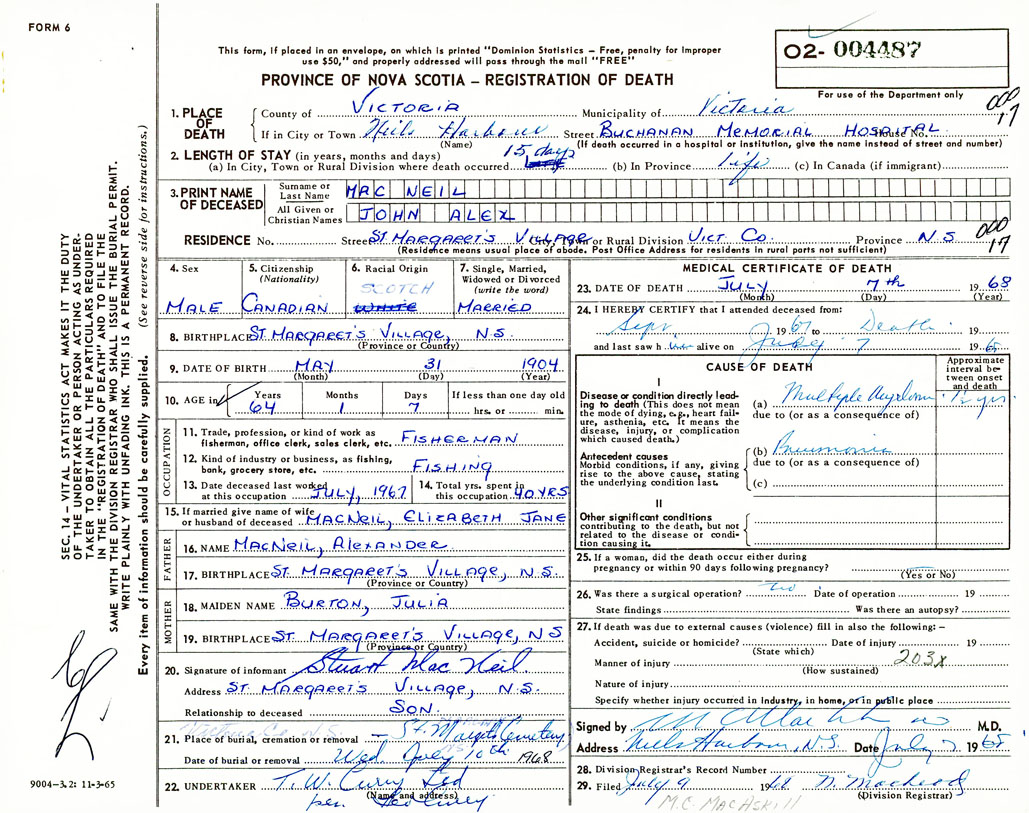 FORM 6
This form, if placed in an envelope, on which is printed "Dominion Statistics – Free, penalty for improper
use $50," and properly addressed will pass through the mail "FREE"
PROVINCE OF NOVA SCOTIA – REGISTRATION OF DEATH
02- 004487
For use of the Department only
000
17
1. PLACE OF DEATH
County of VICTORIA Municipality of Victoria
If in City or Town Neils Harbour Street BUCHANAN MEMORIAL HOSPITAL House No.
(Name) (If death occurred in a hospital or institution, give the name instead of street and number)
2. LENGTH OF STAY (in years, months and days)
(a) In City, Town or Rural Division where death occurred 15 days (b) In Province life (c) In Canada (if immigrant)
3. PRINT NAME OF DECEASED
Surname or Last Name MAC NEIL
All Given or Christian Names JOHN ALEX
RESIDENCE No. Street ST MARGARET'S VILLAGE City, Town or Rural Division VICT CO. Province N S
(Residence means usual place of abode. Post Office Address for residents in rural parts not sufficient)
000
17
4. Sex MALE
5. Citizenship (Nationality) CANADIAN
6. Racial Origin SCOTCH WHITE
7. Single, Married, Widowed or Divorced (write the word) MARRIED
8. BIRTHPLACE ST MARGARET'S VILLAGE, N S.
(Province or Country)
9. DATE OF BIRTH MAY 31 1904
(Month) (Day) (Year)
10. AGE in Years Months Days If less than one day old
64 1 7 hrs. or min.
OCCUPATION
11. Trade, profession, or kind of work as fisherman, office clerk, sales clerk, etc. FISHERMAN
12. Kind of industry or business, as fishing, bank, grocery store, etc. FISHING
13. Date deceased last worked at this occupation JULY, 1967
14. Total yrs. spent in this occupation 40 YRS
15. If married give name of wife or husband of deceased MACNEIL, ELIZABETH JANE
FATHER
16. NAME MACNEIL, ALEXANDER
17. BIRTHPLACE ST. MARGARET'S VILLAGE, N S.
(Province or Country)
MOTHER
18. MAIDEN NAME BURTON, JULIA
19. BIRTHPLACE ST MARGARET'S VILLAGE, N S
(Province or Country)
20. Signature of informant Stuart Mac Neil
Address ST. MARGARETS VILLAGE, N.S.
Relationship to deceased SON.
Victoria Co. N.S.
21. Place of burial, cremation or removal – St. Margts Cemetery
Date of burial or removal Wed. July 10th 1968
22. UNDERTAKER T. W. Curry Ltd
(Name and address)
per.
MEDICAL CERTIFICATE OF DEATH
23. DATE OF DEATH JULY 7th 1968
(Month) (Day) (Year)
24. I HEREBY CERTIFY that I attended deceased from:
Sept 1967 to Death 19
and last saw h him alive on July 7 1968
CAUSE OF DEATH
Approximate interval between onset and death
I
Disease or condition directly leading to death (This does not mean the mode of dying, e.g., heart failure, asthenia, etc. It means the disease, injury, or complication which caused death.)
(a) Multiple Myeloma
due to (or as a consequence of)
Antecedent causes
Morbid conditions, if any, giving rise to the above cause, stating the underlying condition last.
(b) Pneumonia
due to (or as a consequence of)
(c)
II
Other significant conditions contributing to the death, but not related to the disease or condition causing it.
25. If a woman, did the death occur either during pregnancy or within 90 days following pregnancy?
(Yes or No)
26. Was there a surgical operation? no Date of operation 19
State findings Was there an autopsy?
27. If death was due to external causes (violence) fill in also the following: –
Accident, suicide or homicide? Date of injury 19
(State which)
Manner of injury 203X
(How sustained)
Nature of injury
Specify whether injury occurred in industry, in home, or in public place
Signed by M.D.
Address Neils Harbour, N.S. Date July 7 1968
28. Division Registrar's Record Number
29. Filed July 9 1968 N. Macleod
(Division Registrar)
M.C. MACASKILL
SEC. 14 – VITAL STATISTICS ACT MAKES IT THE DUTY
OF THE UNDERTAKER OR PERSON ACTING AS UNDER-
TAKER TO OBTAIN ALL THE PARTICULARS REQUIRED
IN THE "REGISTRATION OF DEATH" AND TO FILE THE
SAME WITH THE DIVISION REGISTRAR WHO SHALL ISSUE THE BURIAL PERMIT.
WRITE PLAINLY WITH UNFADING INK. THIS IS A PERMANENT RECORD.
Every item of information should be carefully supplied. (See reverse side for instructions.)
9004-3.2: 11-3-65